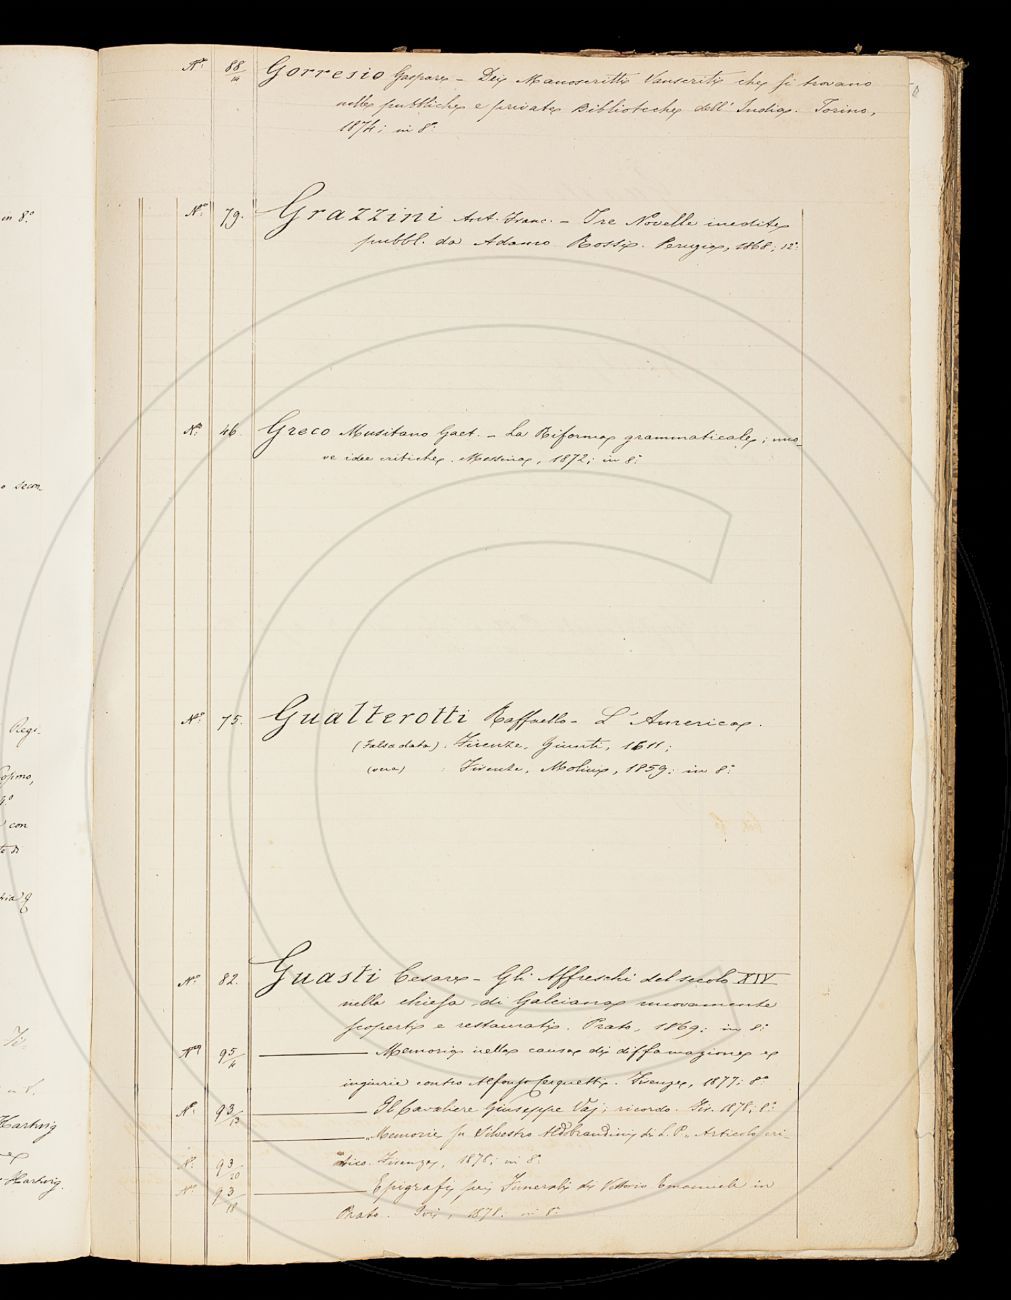 in 8.°
o secon
Regi-
Cosimo,
4.°
con
te di
Hartwig
Hartwig.
N.° 88/14 Gorresio Gaspare - Dei Manoscritti Vanscriti che si trovano
nelle pubbliche e private Biblioteche dell' India. Torino,
1874; in 8.°
N.° 79. Grazzini Ant. Franc. - Tre Novelle inedite
pubbl. da Adamo Rossi. Perugia, 1868, 12.°
N.° 46. Greco Musitano Gaet. - La Riforma grammaticale; nuo-
ve idee critiche. Messina, 1872; in 8.°
N.° 75. Gualterotti Raffaello - L'America.
(Falsa data). Firenze, Giunti, 1611;
(vera) Firenze, Molini, 1859; in 8.°
N.° 82. Guasti Cesare - Gli Affreschi del secolo XIV
nella chiesa di Galciana nuovamente
scoperti e restaurati. Prato, 1869; in 8.°
N.° 95/4 Memoria nella causa di diffamazione e
ingiurie contro Alfonso Cerquetti. Firenze, 1877; 8.°
N.° 93/13 Il Cavaliere Giuseppe Vaj; ricordo. Fir. 1878; 8.°
Memorie Silvestro Aldobrandini di L. P. Articolo cri-
N.° 93/20 tico. Firenze, 1878; in 8.°
N.° 93/18 Epigrafi pei Funerali di Vittorio Emanuele in
Prato. Ivi, 1878. in 8.°